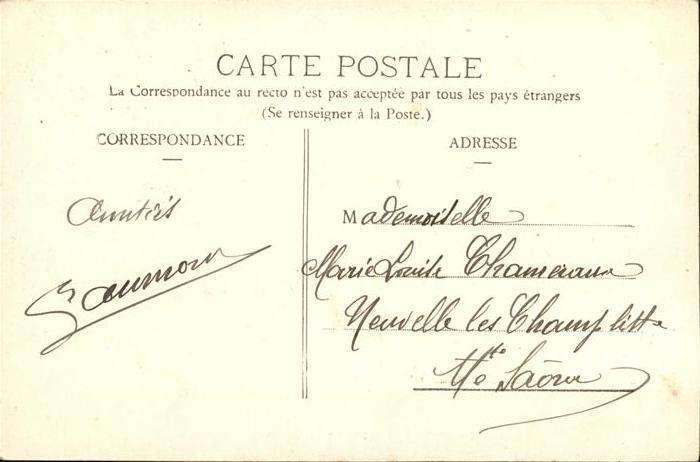 CARTE POSTALE
La Correspondance au recto n'est pas acceptée par tous les pays étrangers
(Se renseigner à la Poste.)
CORRESPONDANCE
Amitiés
ADRESSE
Mademoiselle
Marie Louise
Neuvelle les Champlitte
Hte Saône